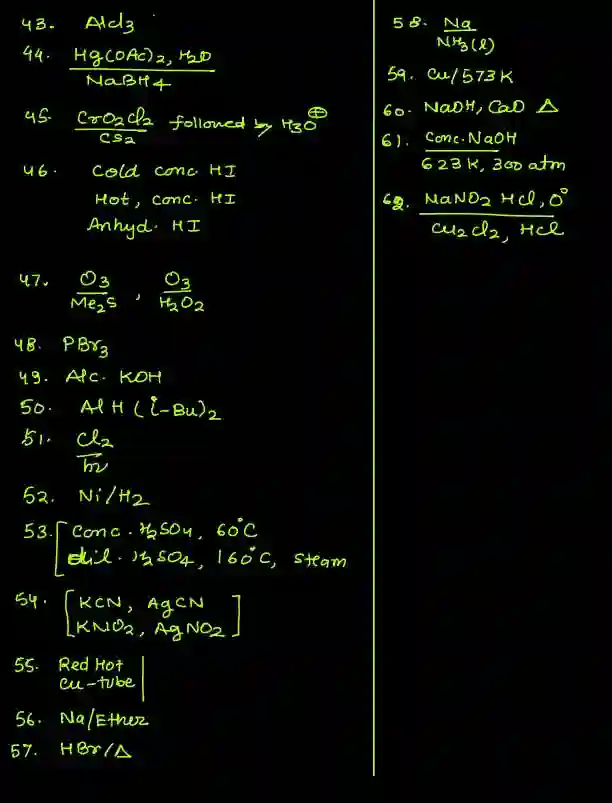 43. AlCl3
44. Hg(OAc)2, H2O
NaBH4
45. CrO2Cl2 followed by H3O⊕
CS2
46. Cold conc HI
Hot, conc. HI
Anhyd. HI
47. O3 , O3
Me2S H2O2
48. PBr3
49. Alc. KOH
50. AlH(i-Bu)2
51. Cl2
hν
52. Ni/H2
53. [conc. H2SO4, 60°C
dil. H2SO4, 160°C, steam
54. [KCN, AgCN
KNO2, AgNO2]
55. Red Hot
Cu-tube
56. Na/Ether
57. HBr/Δ
58. Na
NH3(l)
59. Cu/573K
60. NaOH, CaO Δ
61. Conc. NaOH
623K, 300 atm
62. NaNO2 HCl, 0°
Cu2Cl2, HCl